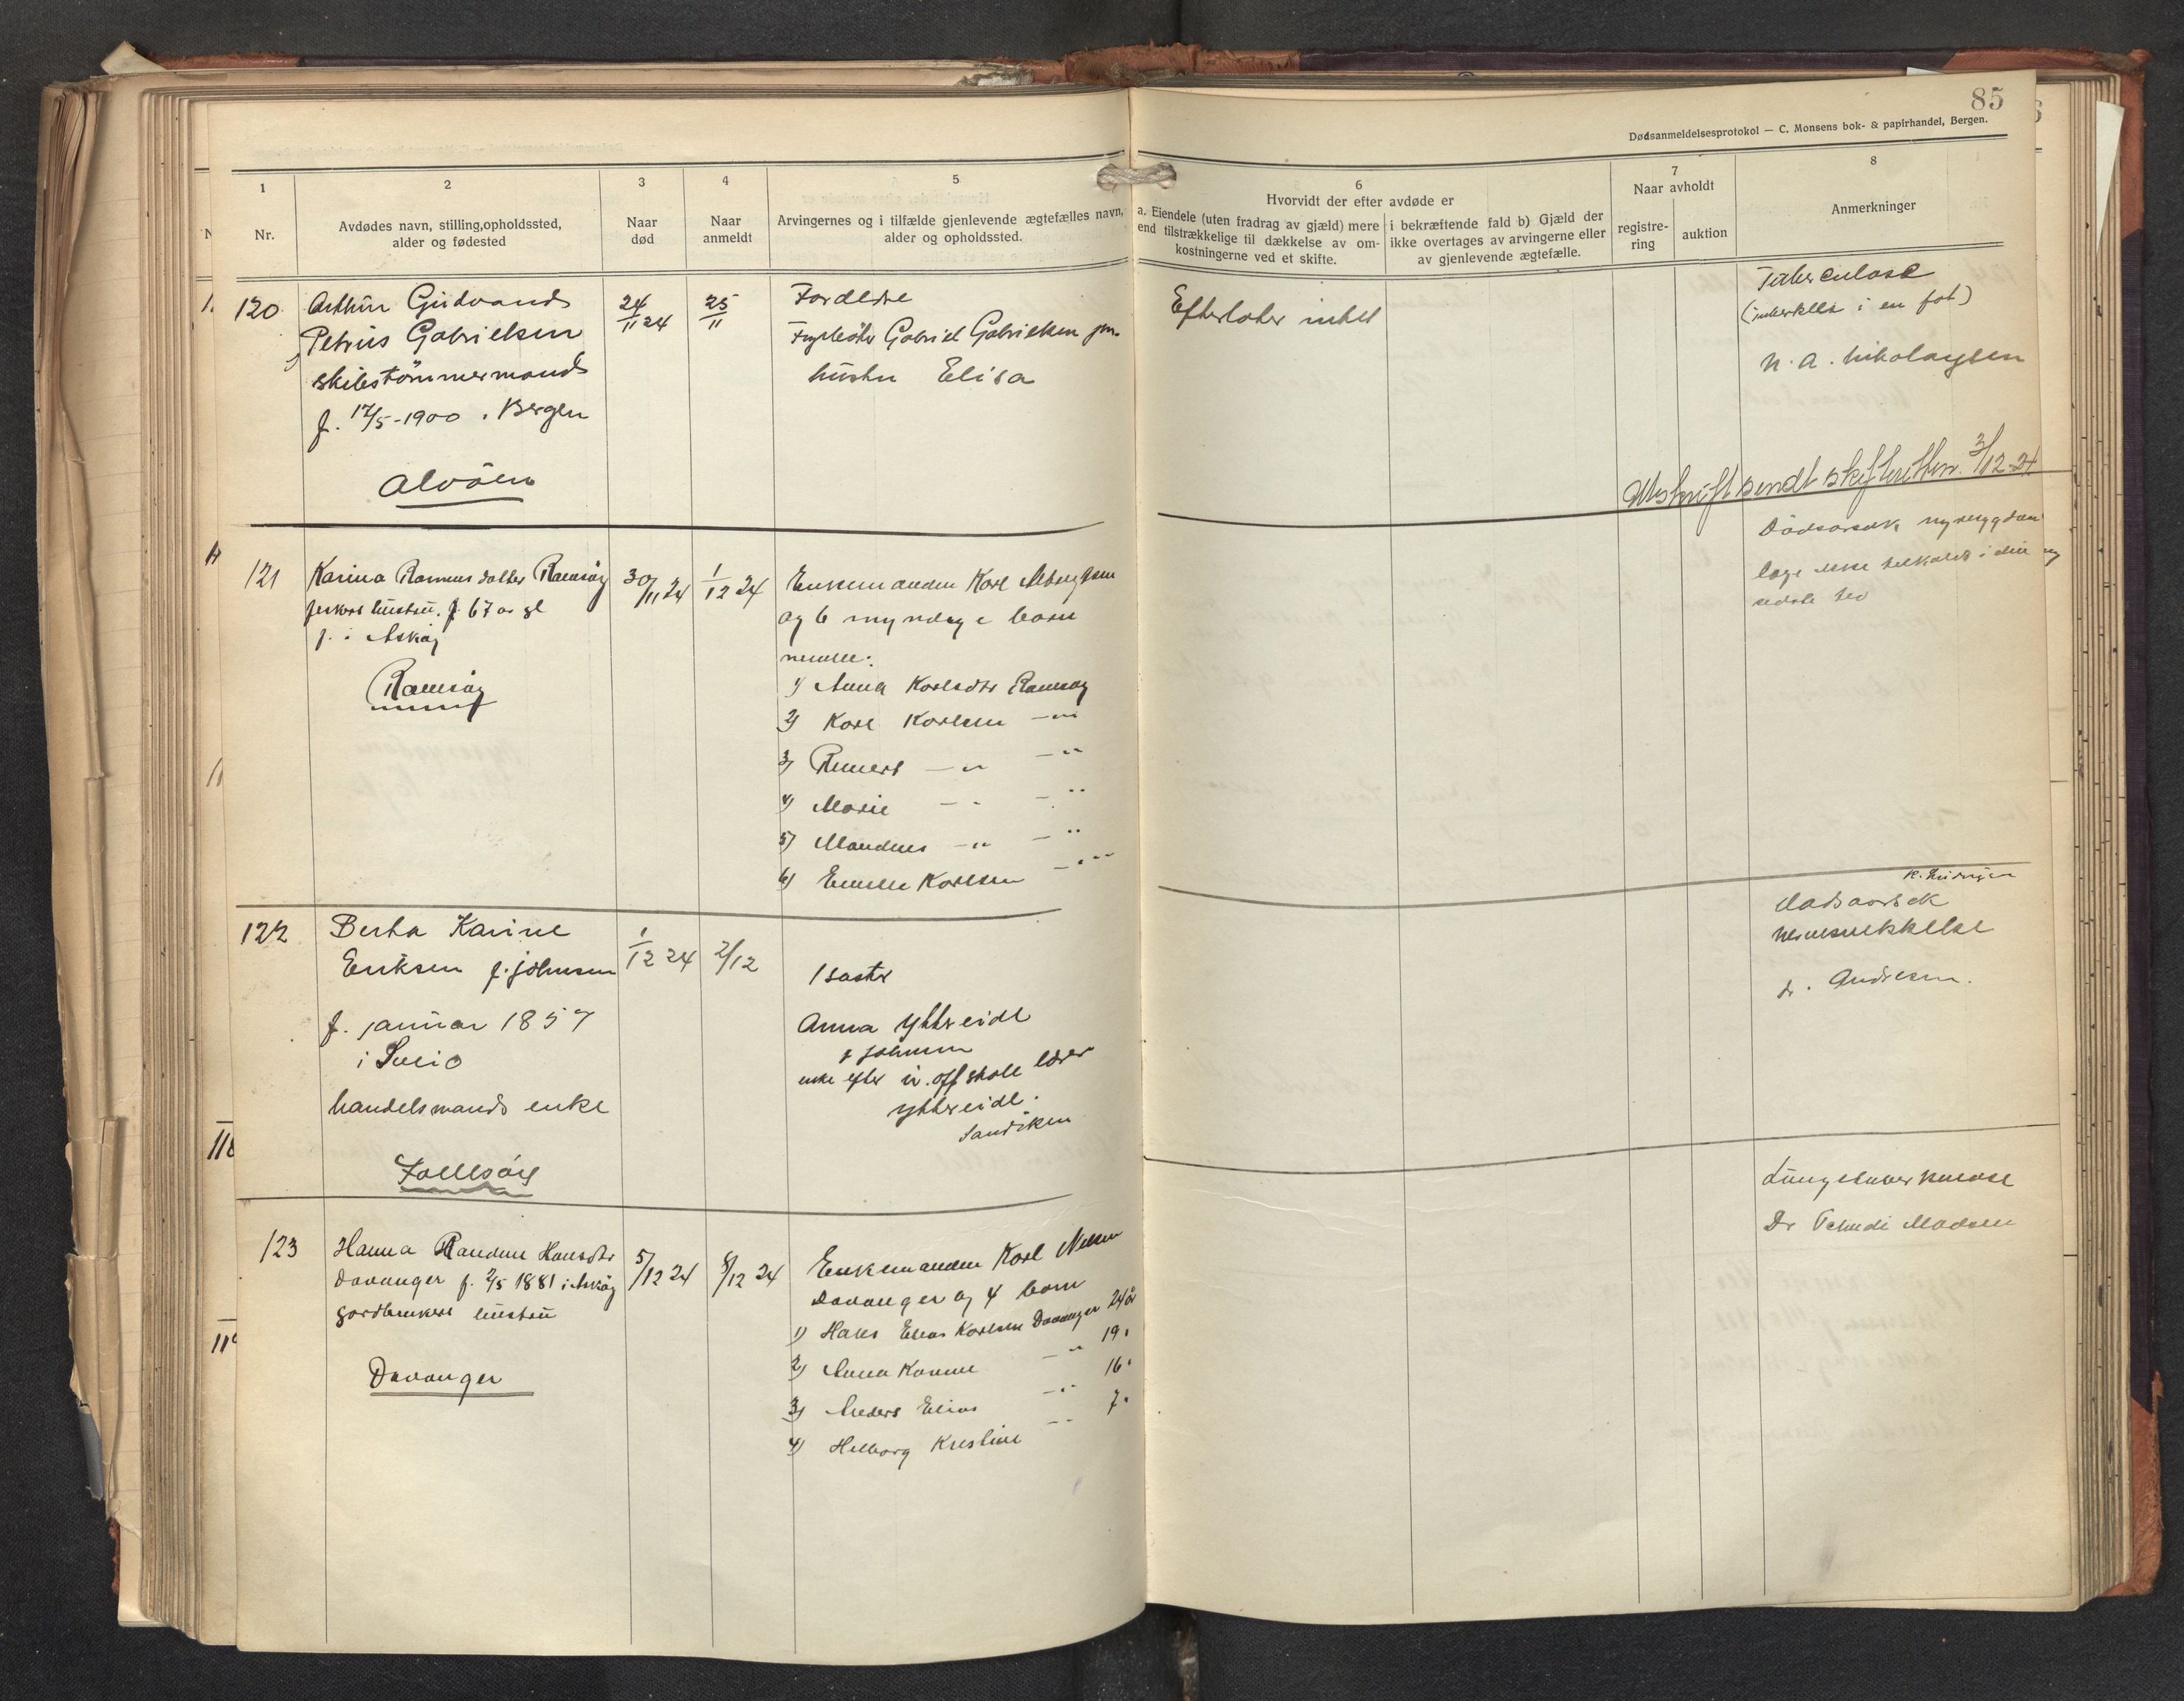 85
Dødsanmeldelsesprotokol — C. Monsens bok- & papirhandel, Bergen.
1
Nr.
2
Avdødes navn, stilling, opholdssted,
alder og fødested
3
Naar
død
4
Naar
anmeldt
5
Arvingernes og i tilfælde gjenlevende ægtefælles navn,
alder og opholdssted.
6
Hvorvidt der efter avdøde er
a. Eiendele (uten fradrag av gjæld) mere
end tilstrækkelige til dækkelse av om-
kostningerne ved et skifte.
i bekræftende fald b) Gjæld der
ikke overtages av arvingerne eller
av gjenlevende ægtefælle.
7
Naar avholdt
registre-
ring
auktion
8
Anmerkninger
120
Arthur Gudvand
Petrus Gabrielsen
skibstömmermand
f. 17/5-1900 i Bergen
Alvöen
24/11 24
25/11
Forældre
Fyrbøter Gabriel Gabrielsen jun.
hustru Elisa
Efterlater intet
Tuberculose
(tuberkler i en fot)
N. A. Nikolaysen
Utskrift sendt skifteretten 3/12-24
121
Karina Rasmusdatter Ramsøy
fiskers hustru, 67 år gl
f. i Askøy
Ramsøy
30/11 24
1/12 24
Enkemanden Karl
og 6 myndige barn
nemlig:
1) Anna Karlsdtr Ramsøy
2) Karl Karlsen —"—
3) Reinert —"— —"—
4) Marie —"— —"—
5) Mandius —"— —"—
6) Karlsen —"—
Dødsårsak
læge ikke tilkaldt i den
sidste tid
122
Berta Karine
Eriksen f. Johnsen
f. januar 1857
i Sveio
handelsmands enke
Follesöy
1/12 24
2/12
1 søster
Anna Yttreeide
f Johnsen
enke efter off skole lærer
Yttreeide.
Sandviken
dødsaarsak
hjernesvekkelse
dr. Andresen.
123
Hanna Randine Hansdtr
Davanger f. 2/5 1881 i Askøy
gardbrukers hustru
Davanger
5/12 24
8/12 24
Enkemanden Karl Nilsen
Davanger og 4 barn
1) Hans Elias Karlsen Davanger 24 år
2) Anna Karine —"— 19 "
3) Anders Elias —"— 16 "
4) Hilborg Kristine —"— 7 "
Lungetuberkulose
Dr Tchudi Madsen